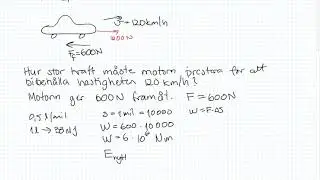 v=120km/h
600N
F=600N
Hur stor kraft måste motorn prestera för att
bibehålla hastigheten 120 km/h?
Motorn ger 600N framåt. F=600N
0,5 l/mil s=1mil=10000 W=F·Δs
1l → 33MJ W=600·10000
W=6·10⁶ Nm
E nytt